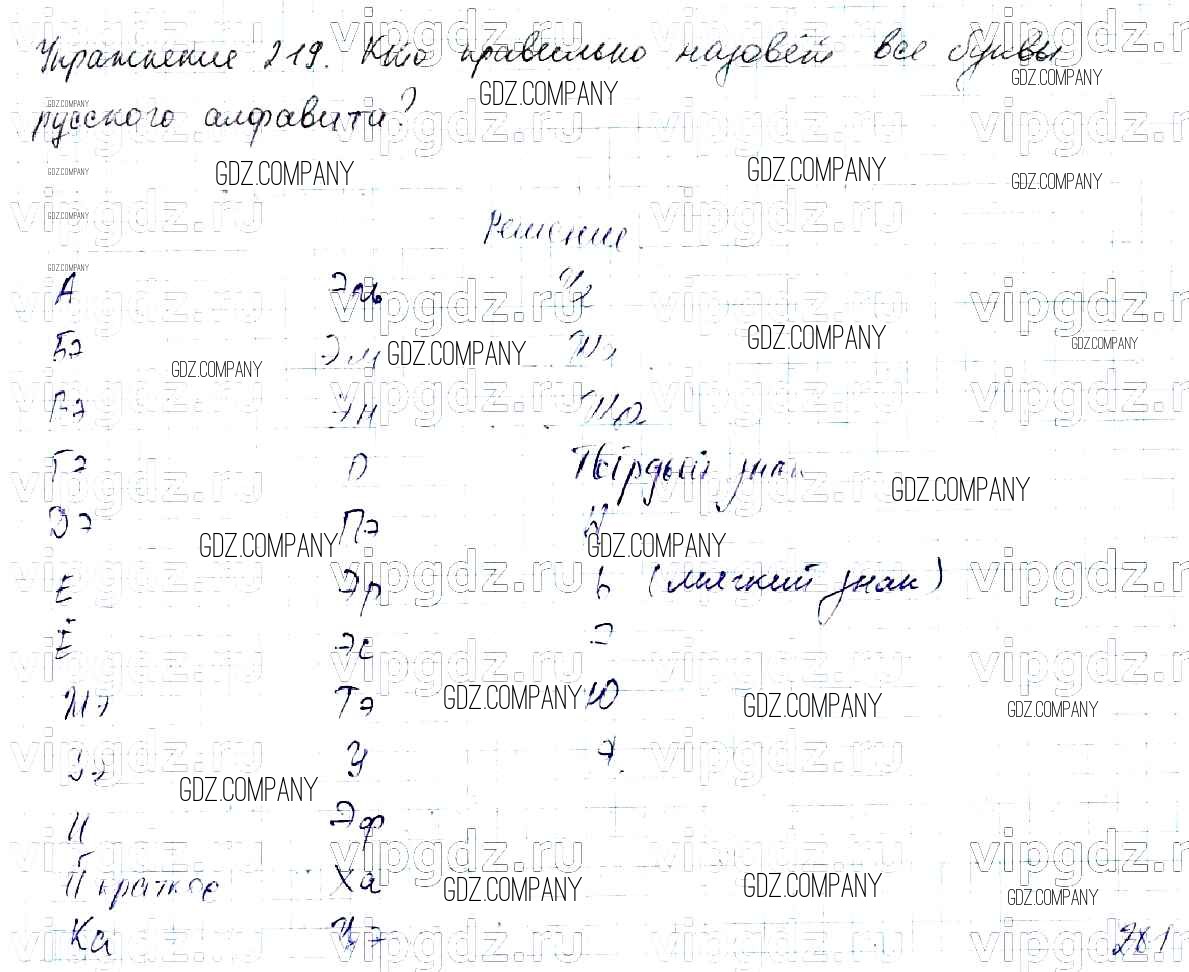 Упражнение 219. Кто правильно назовёт все буквы
русского алфавита?
Решение
А
Бэ
Вэ
Гэ
Дэ
Е
Ё
Жэ
Зэ
И
И краткое
Ка
Эль
Эм
Эн
О
Пэ
Эр
Эс
Тэ
У
Эф
Ха
Цэ
Ша
Твёрдый знак
Ы
ь (мягкий знак)
Э
Ю
GDZ.COMPANY
vipgdz.ru